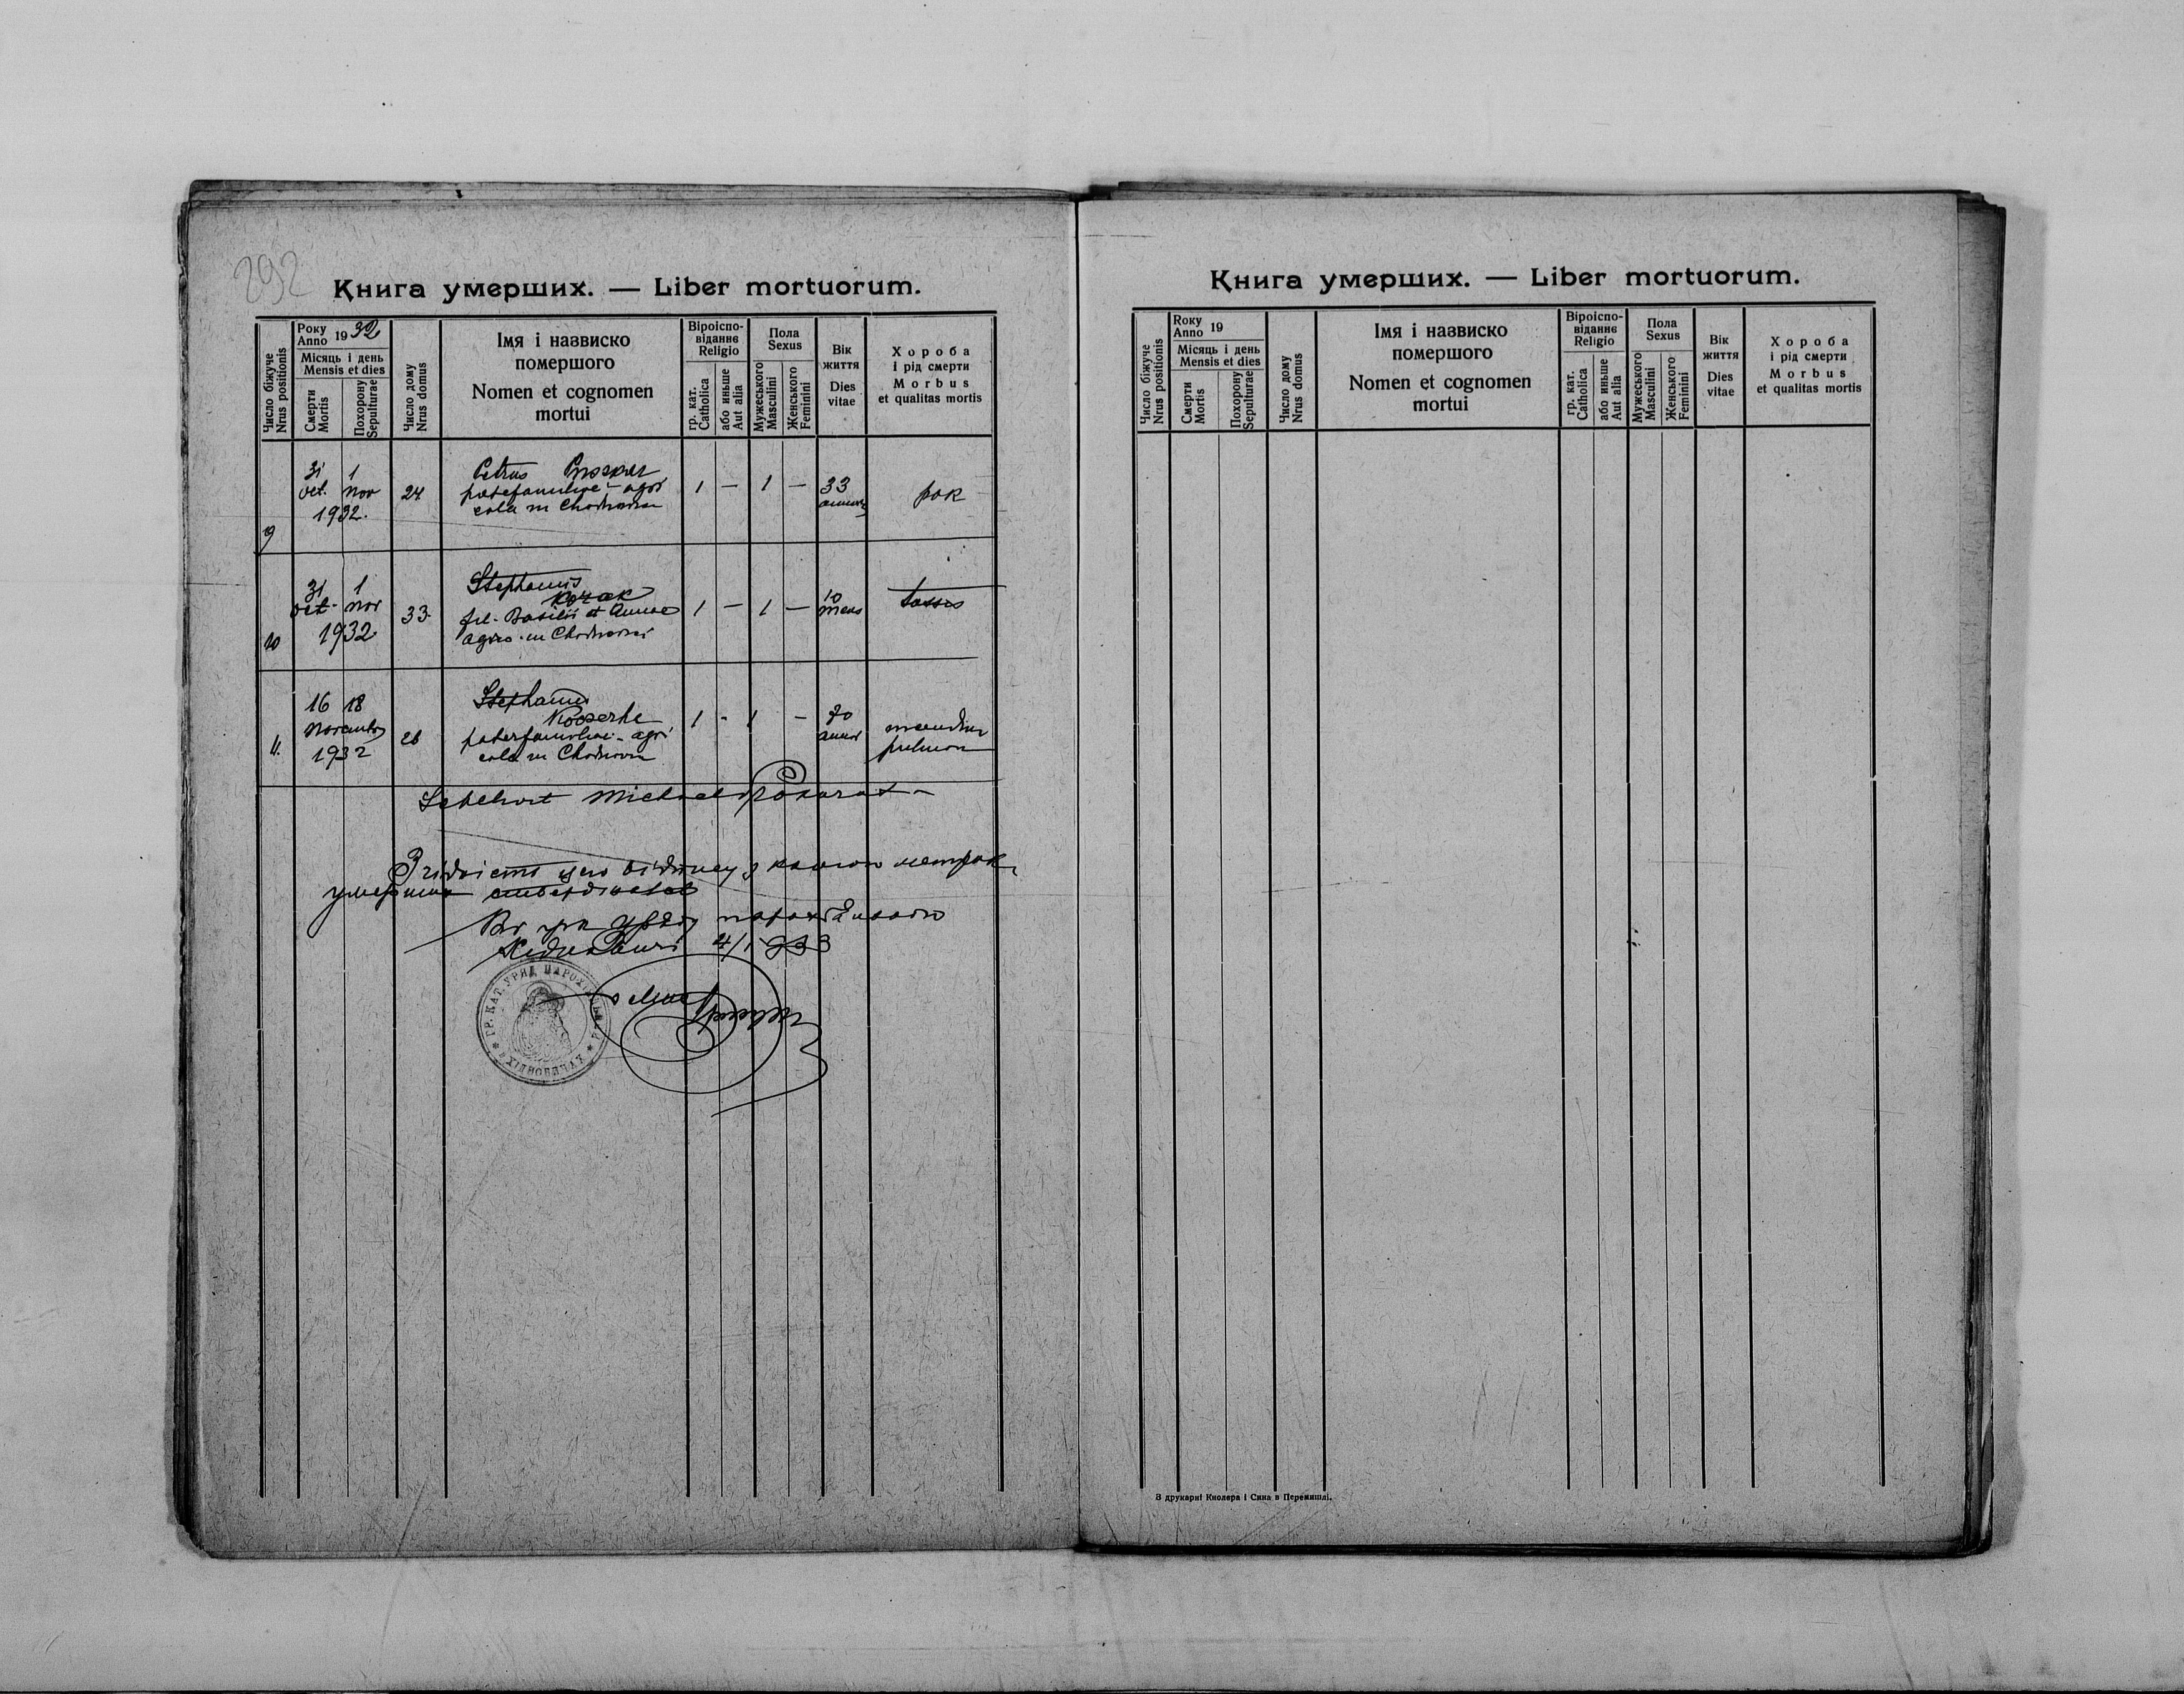 292
Книга умерших. — Liber mortuorum.
Число біжуче
Nrus positionis
Року
Anno 1932
Місяць і день
Mensis et dies
Смерти
Mortis
Похорону
Sepulturae
Число дому
Nrus domus
Імя і назвиско
помершого
Nomen et cognomen
mortui
Віроіспо-
віданнє
Religio
гр. кат.
Catholica
або иньше
Aut alia
Пола
Sexus
Мужеського
Masculini
Женського
Feminini
Вік
життя
Dies
vitae
Хороба
і рід смерти
Morbus
et qualitas mortis
9
31 1
oct. nov
1932.
24
Petrus
paterfamiliae - agri
cola in
1 — 1 —
33
annor
рак
10
31 1
oct. nov
1932
33
Stephanus
Kozak
fil. Basilii et Annae
agric. in
1 — 1 —
10
mens
tussis
11.
16 18
Novembr
1932
26
Stephanus
paterfamiliae - agri
cola in
1 - 1 -
70
annor
pulmon
Michael
Згідність сего відпису з книгою метрик
умерших стверджаєсь
Від гр к уряду парохіяльного
4/1 933
ГР. КАТ. УРЯД ПАРОХІЯЛЬНИЙ
в ХІДНОВИЧАХ
Книга умерших. — Liber mortuorum.
Число біжуче
Nrus positionis
Року
Anno 19
Місяць і день
Mensis et dies
Смерти
Mortis
Похорону
Sepulturae
Число дому
Nrus domus
Імя і назвиско
помершого
Nomen et cognomen
mortui
Віроіспо-
віданнє
Religio
гр. кат.
Catholica
або иньше
Aut alia
Пола
Sexus
Мужеського
Masculini
Женського
Feminini
Вік
життя
Dies
vitae
Хороба
і рід смерти
Morbus
et qualitas mortis
З друкарні Кнолера і Сина в Перемишлі.